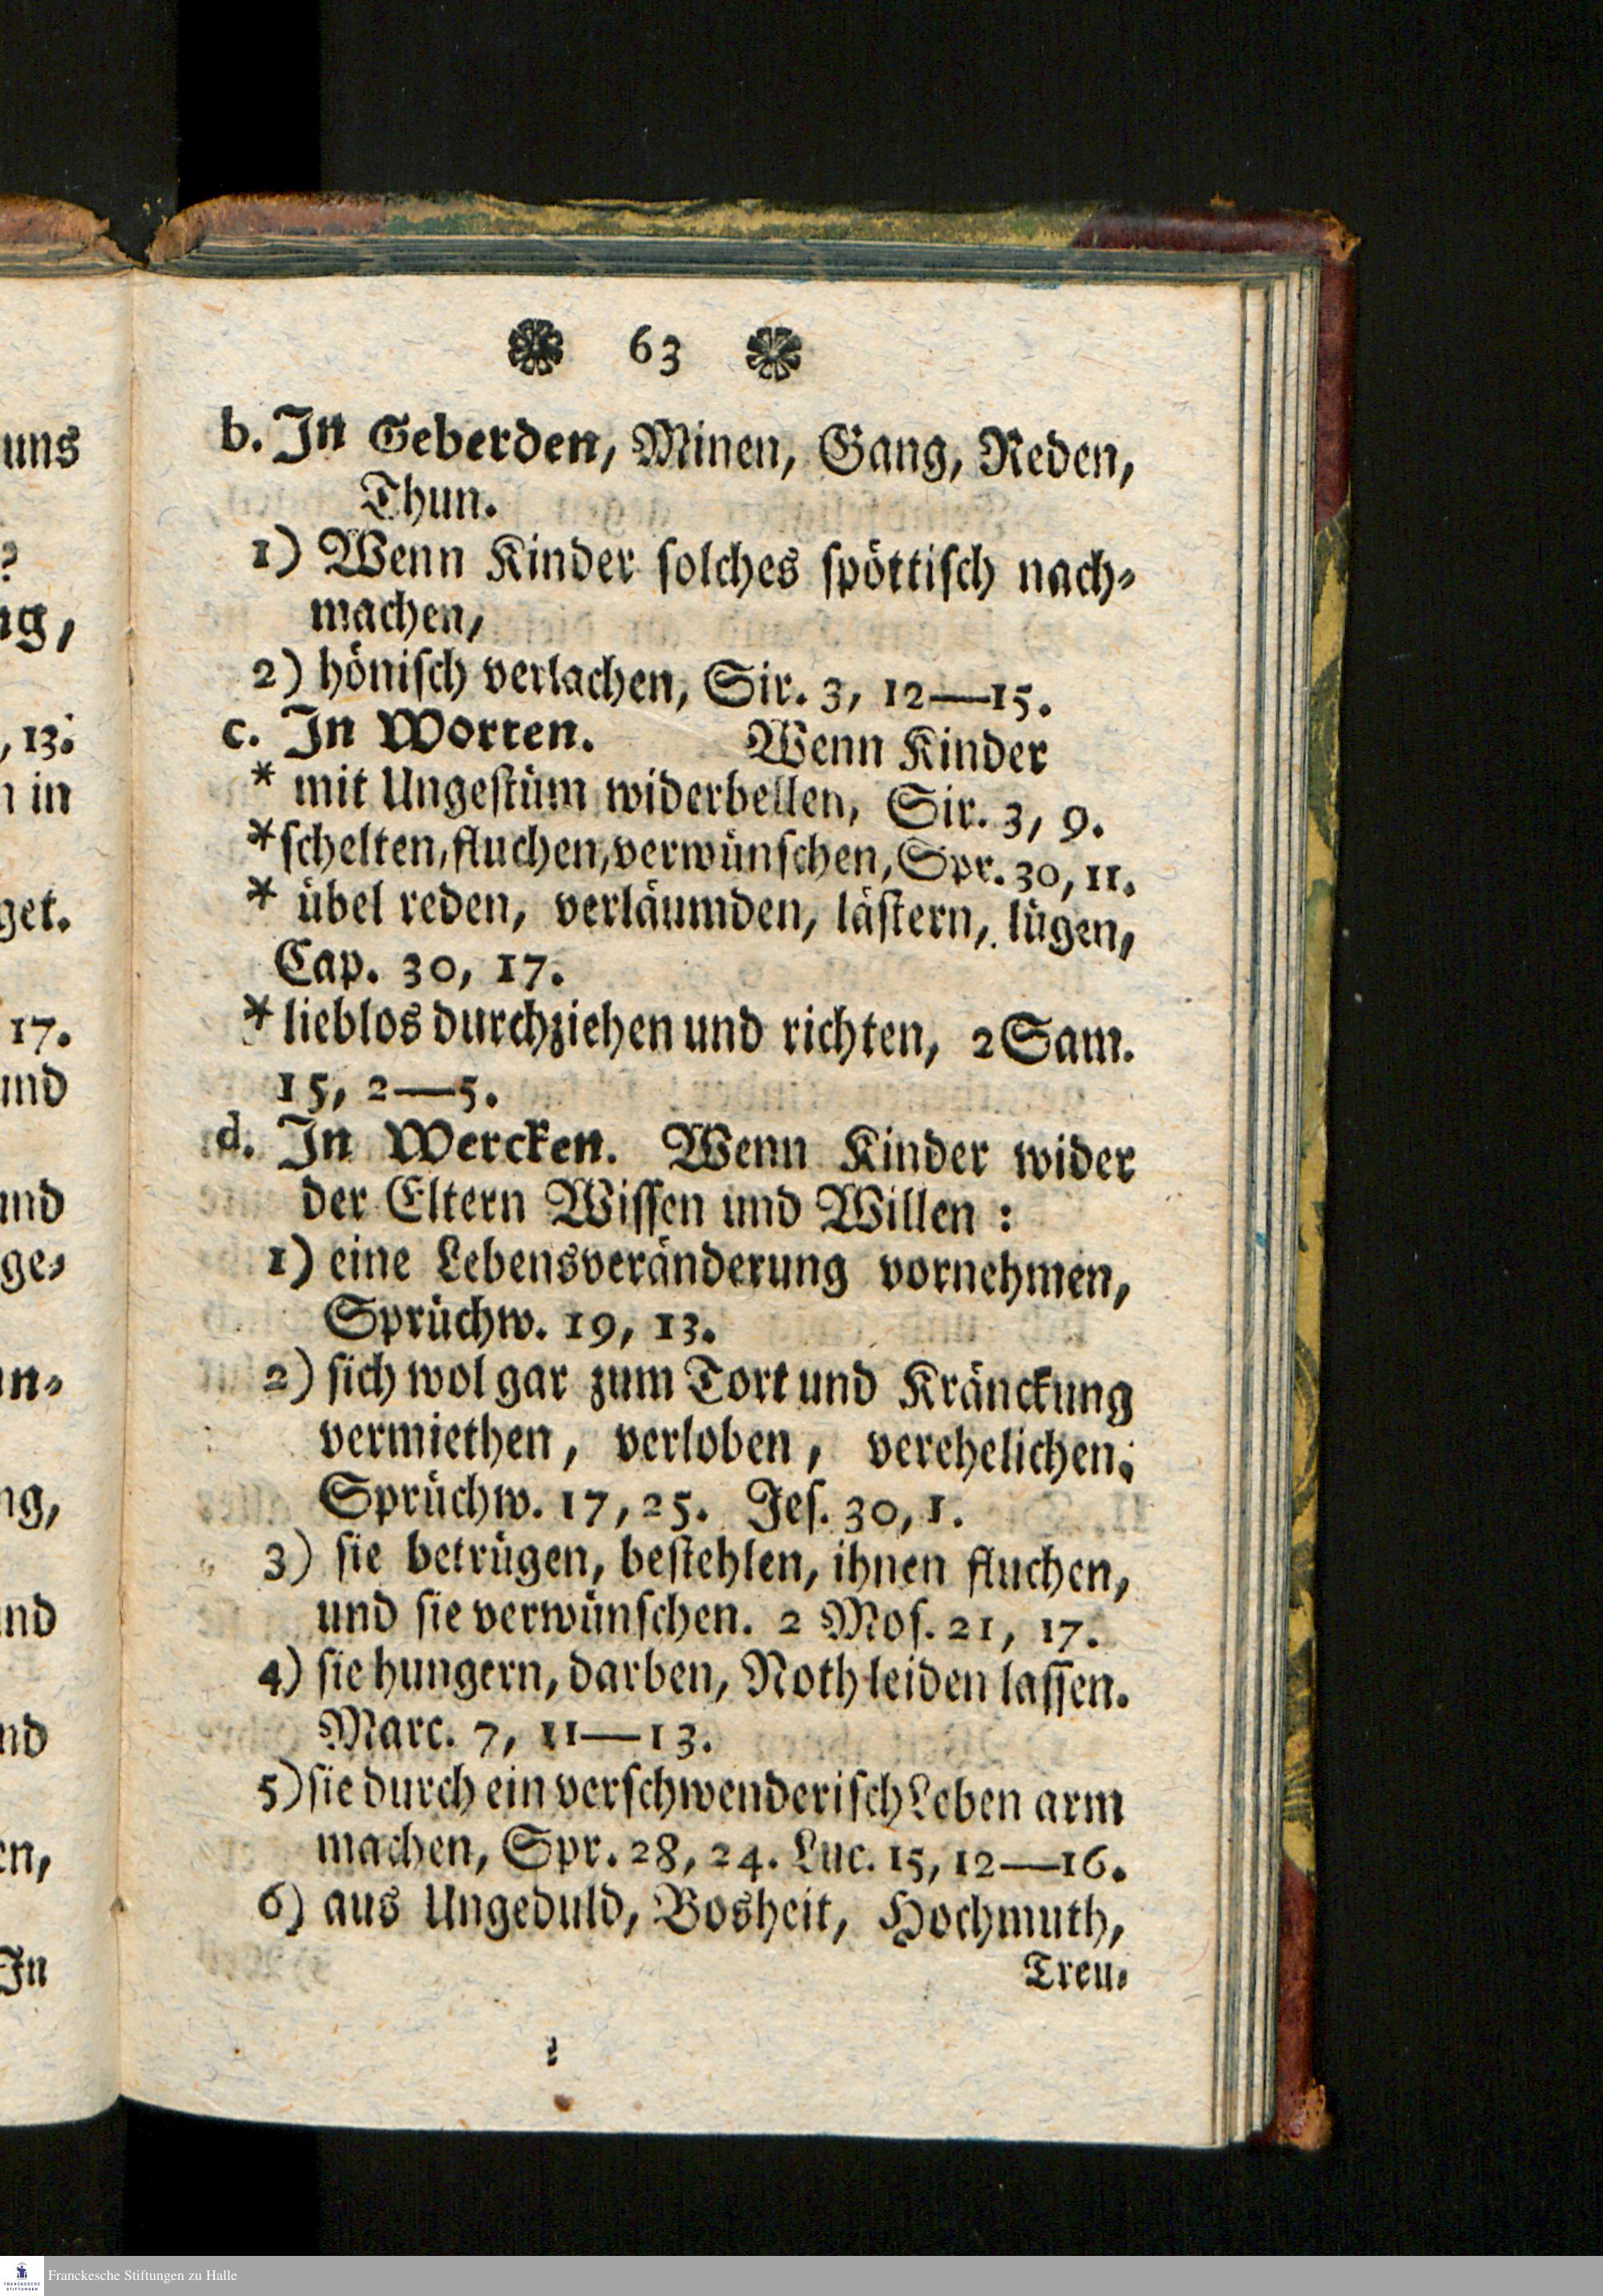 63
b. In Geberden, Minen, Gang, Reden,
Thun.
1) Wenn Kinder ſolches ſpöttiſch nach-
machen,
2) höniſch verlachen, Sir. 3, 12—15.
c. In Worten. Wenn Kinder
* mit Ungeſtüm widerbellen, Sir. 3, 9.
* ſchelten, fluchen, verwünſchen, Spr. 30, 11.
* übel reden, verläumden, läſtern, lügen,
Cap. 30, 17.
* lieblos durchziehen und richten, 2 Sam.
15, 2—5.
d. In Wercken. Wenn Kinder wider
der Eltern Wiſſen und Willen :
1) eine Lebensveränderung vornehmen,
Sprüchw. 19, 13.
2) ſich wol gar zum Tort und Kränckung
vermiethen, verloben, verehelichen.
Sprüchw. 17, 25. Jeſ. 30, 1.
3) ſie betrügen, beſtehlen, ihnen fluchen,
und ſie verwünſchen. 2 Moſ. 21, 17.
4) ſie hungern, darben, Noth leiden laſſen.
Marc. 7, 11—13.
5) ſie durch ein verſchwenderiſch Leben arm
machen, Spr. 28, 24. Luc. 15, 12—16.
6) aus Ungeduld, Bosheit, Hochmuth,
Treu-
uns
?
, 13.
in
get.
17.
und
und
ge-
nd
In
Franckesche Stiftungen zu Halle
FRANCKESCHE
STIFTUNGEN